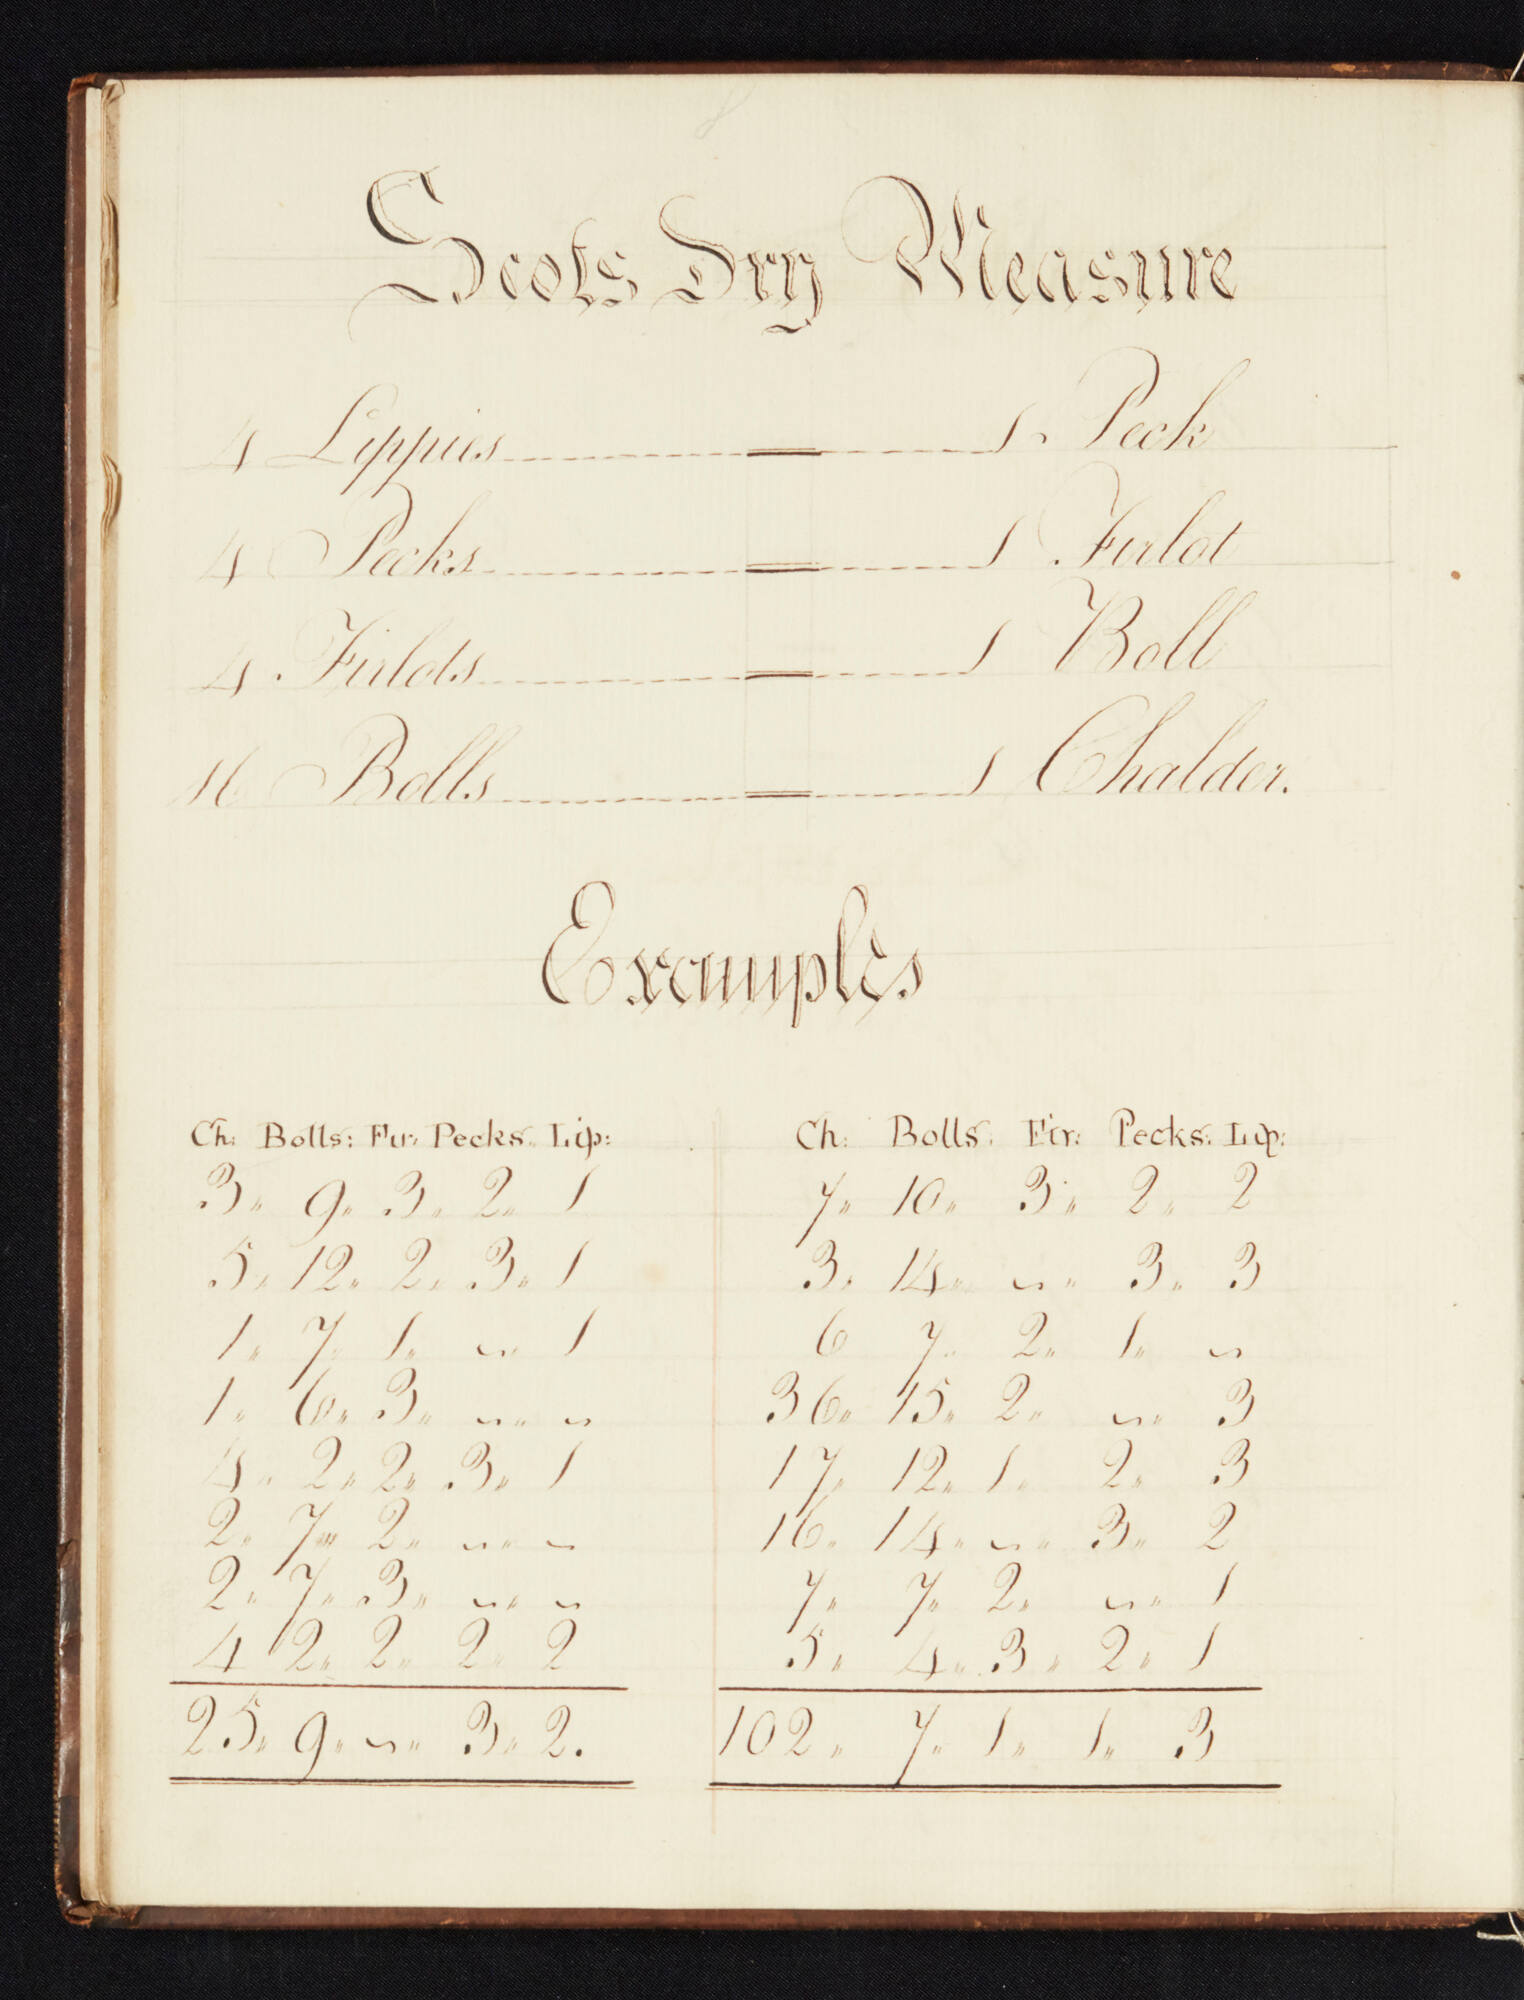 Scots Dry Measure
4 Lippies = 1 Peck
4 Pecks = 1 Firlot
4 Firlots = 1 Boll
16 Bolls = 1 Chalder.
Examples
Ch: Bolls: Fir: Pecks. Lip:
3 " 9 " 3 " 2 " 1
5 " 12 " 2 " 3 " 1
1 " 7 " 1 " ~ " 1
1 " 6 " 3 " ~ " ~
4 " 2 " 2 " 3 " 1
2 " 7 " 2 " ~ " ~
2 " 7 " 3 " ~ " ~
4 2 " 2 " 2 " 2
25 " 9 " ~ " 3 " 2.
Ch: Bolls: Fir: Pecks: Lip:
7 " 10 " 3 " 2 " 2
3 " 14 " ~ " 3 " 3
6 7 " 2 " 1 " ~
36 " 15 " 2 " ~ " 3
17 " 12 " 1 " 2 " 3
16 " 14 " ~ " 3 " 2
7 " 7 " 2 " ~ " 1
5 " 4 " 3 " 2 " 1
102 " 7 " 1 " 1 " 3